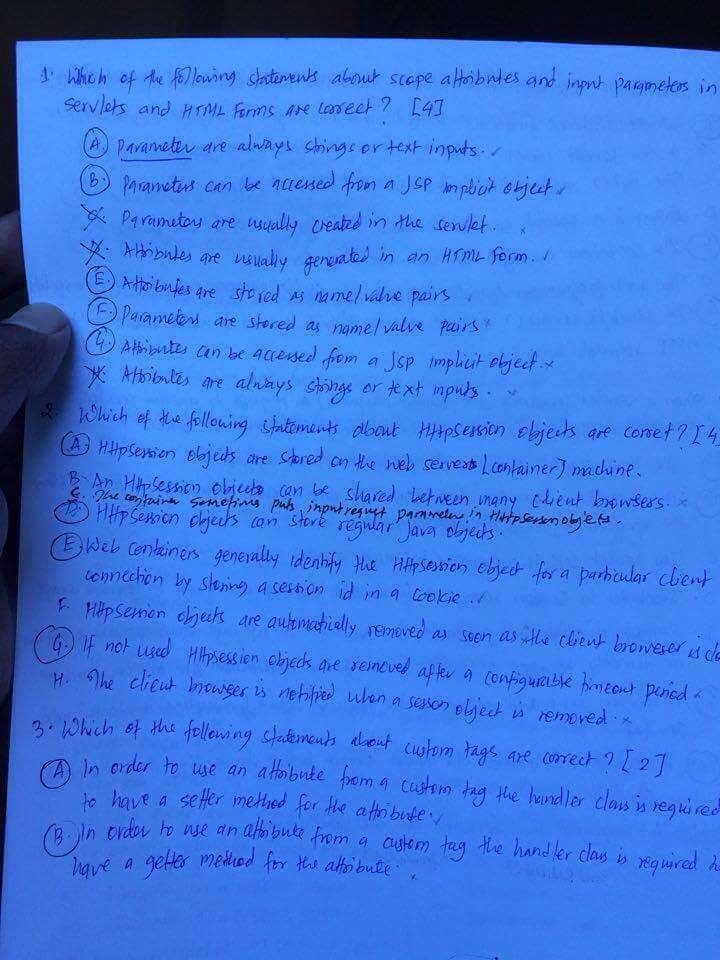 1. Which of the following statements about scope attributes and input parameters in
servlets and HTML Forms are correct? [4]
A. Parameter are always strings or text inputs. ✓
B. Parameters can be accessed from a JSP implicit object ✓
C. Parameters are usually created in the servlet. x
D. Attributes are usually generated in an HTML Form. ✓
E. Attributes are stored as name/value pairs
F. Parameters are stored as name/value pairs x
G. Attributes can be accessed from a JSP implicit object. x
H. Attributes are always strings or text inputs. x
2. Which of the following statements about HttpSession objects are corret? [4
A. HttpSession objects are stored on the web servers [container] machine.
B. An HttpSession objects can be shared between many client browsers. x
C. The container sometimes puts input request parameters in HttpSession objects.
D. HttpSession objects can store regular Java objects.
E. Web containers generally identify the HttpSession object for a particular client
connection by storing a session id in a cookie. ✓
F. HttpSession objects are automatically removed as soon as the client broweser is clo
G. If not used HttpSession objects are removed after a configurable timeout period x
H. The client browser is notified when a sesson object is removed. x
3. Which of the following statements about custom tags are correct? [2]
A In order to use an attribute from a custom tag the handler class is required
to have a setter method for the attribute. ✓
B. In order to use an attribute from a custom tag the handler class is required
have a getter method for the attribute. x